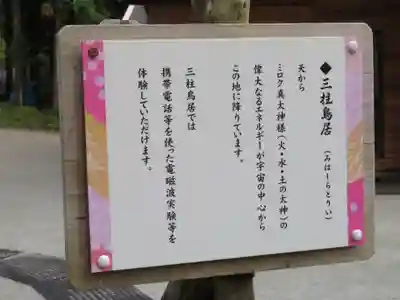 ◆三柱鳥居(みはしらとりい)
天から
ミロク真大神様(火・水・土の大神)の
偉大なるエネルギーが宇宙の中心から
この地に降りています。
三柱鳥居では
携帯電話等を使った電磁波実験等を
体験していただけます。